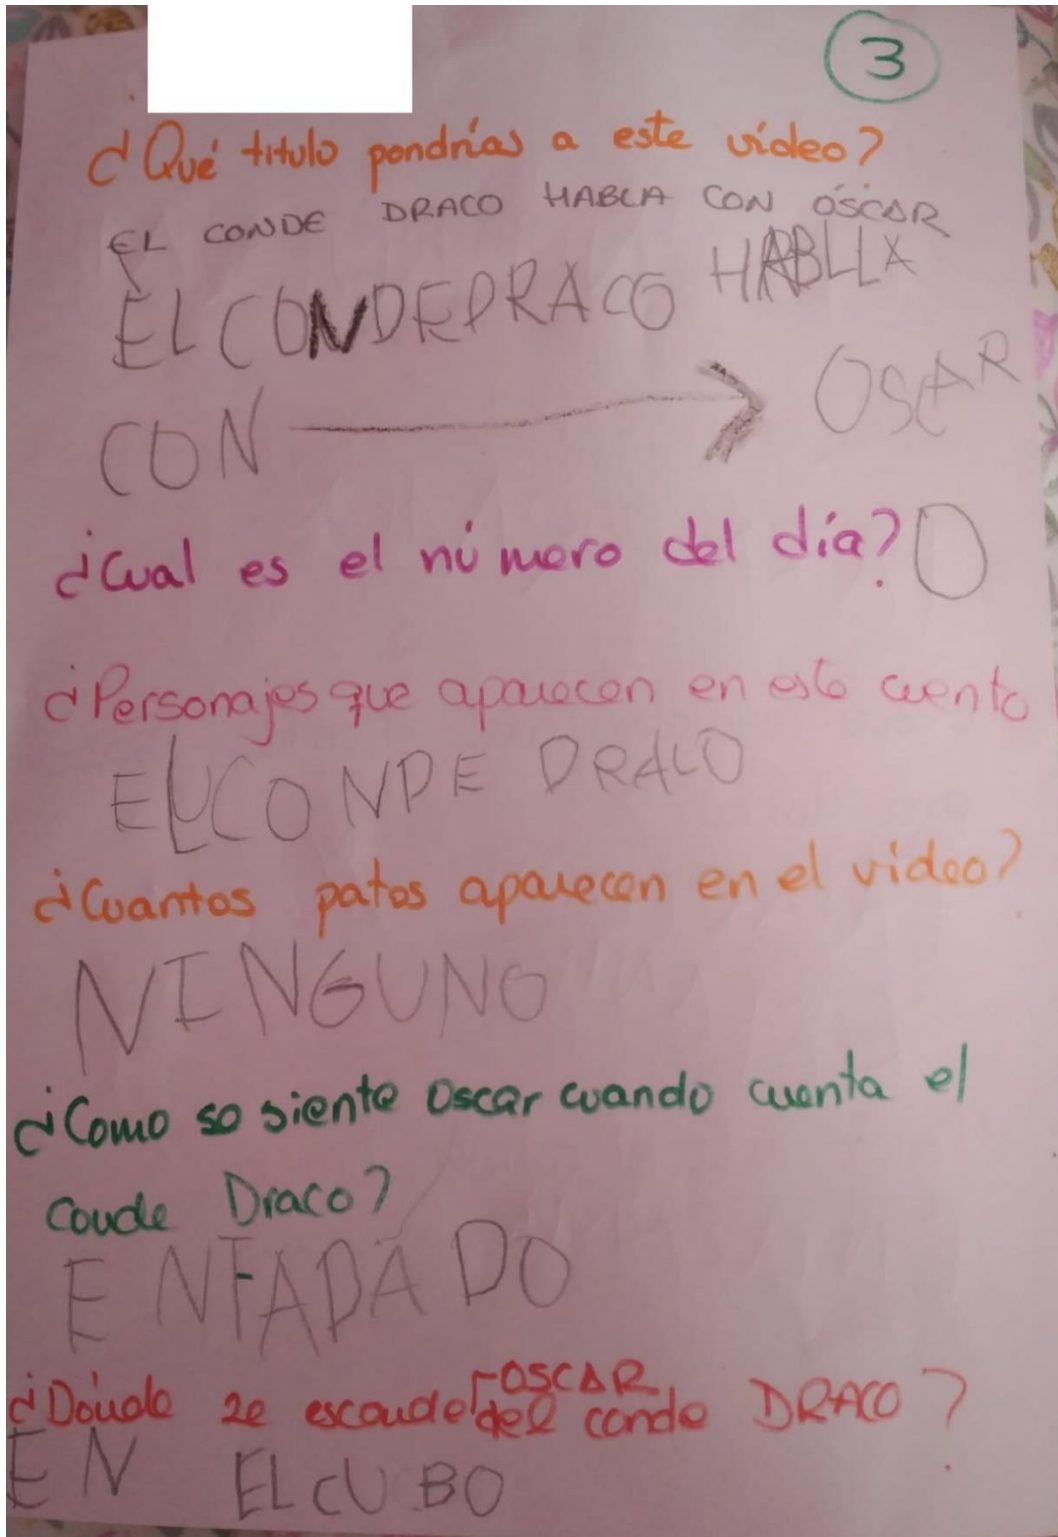 3
¿Qué titulo pondrías a este vídeo?
EL CONDE DRACO HABLA CON ÓSCAR
EL CONDE DRACO HABLLA
CON → OSCAR
¿Cual es el número del día? 0
¿Personajes que aparecen en este cuento
EL CONDE DRACO
¿Cuantos patos aparecen en el video?
NINGUNO
¿Como se siente Oscar cuando cuenta el
conde Draco?
ENFADADO
¿Dónde se esconde OSCAR del conde DRACO?
EN EL CUBO